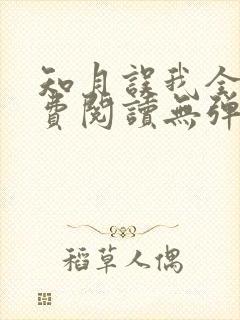 知月誤我全
費閱讀無彈
稻草人偶